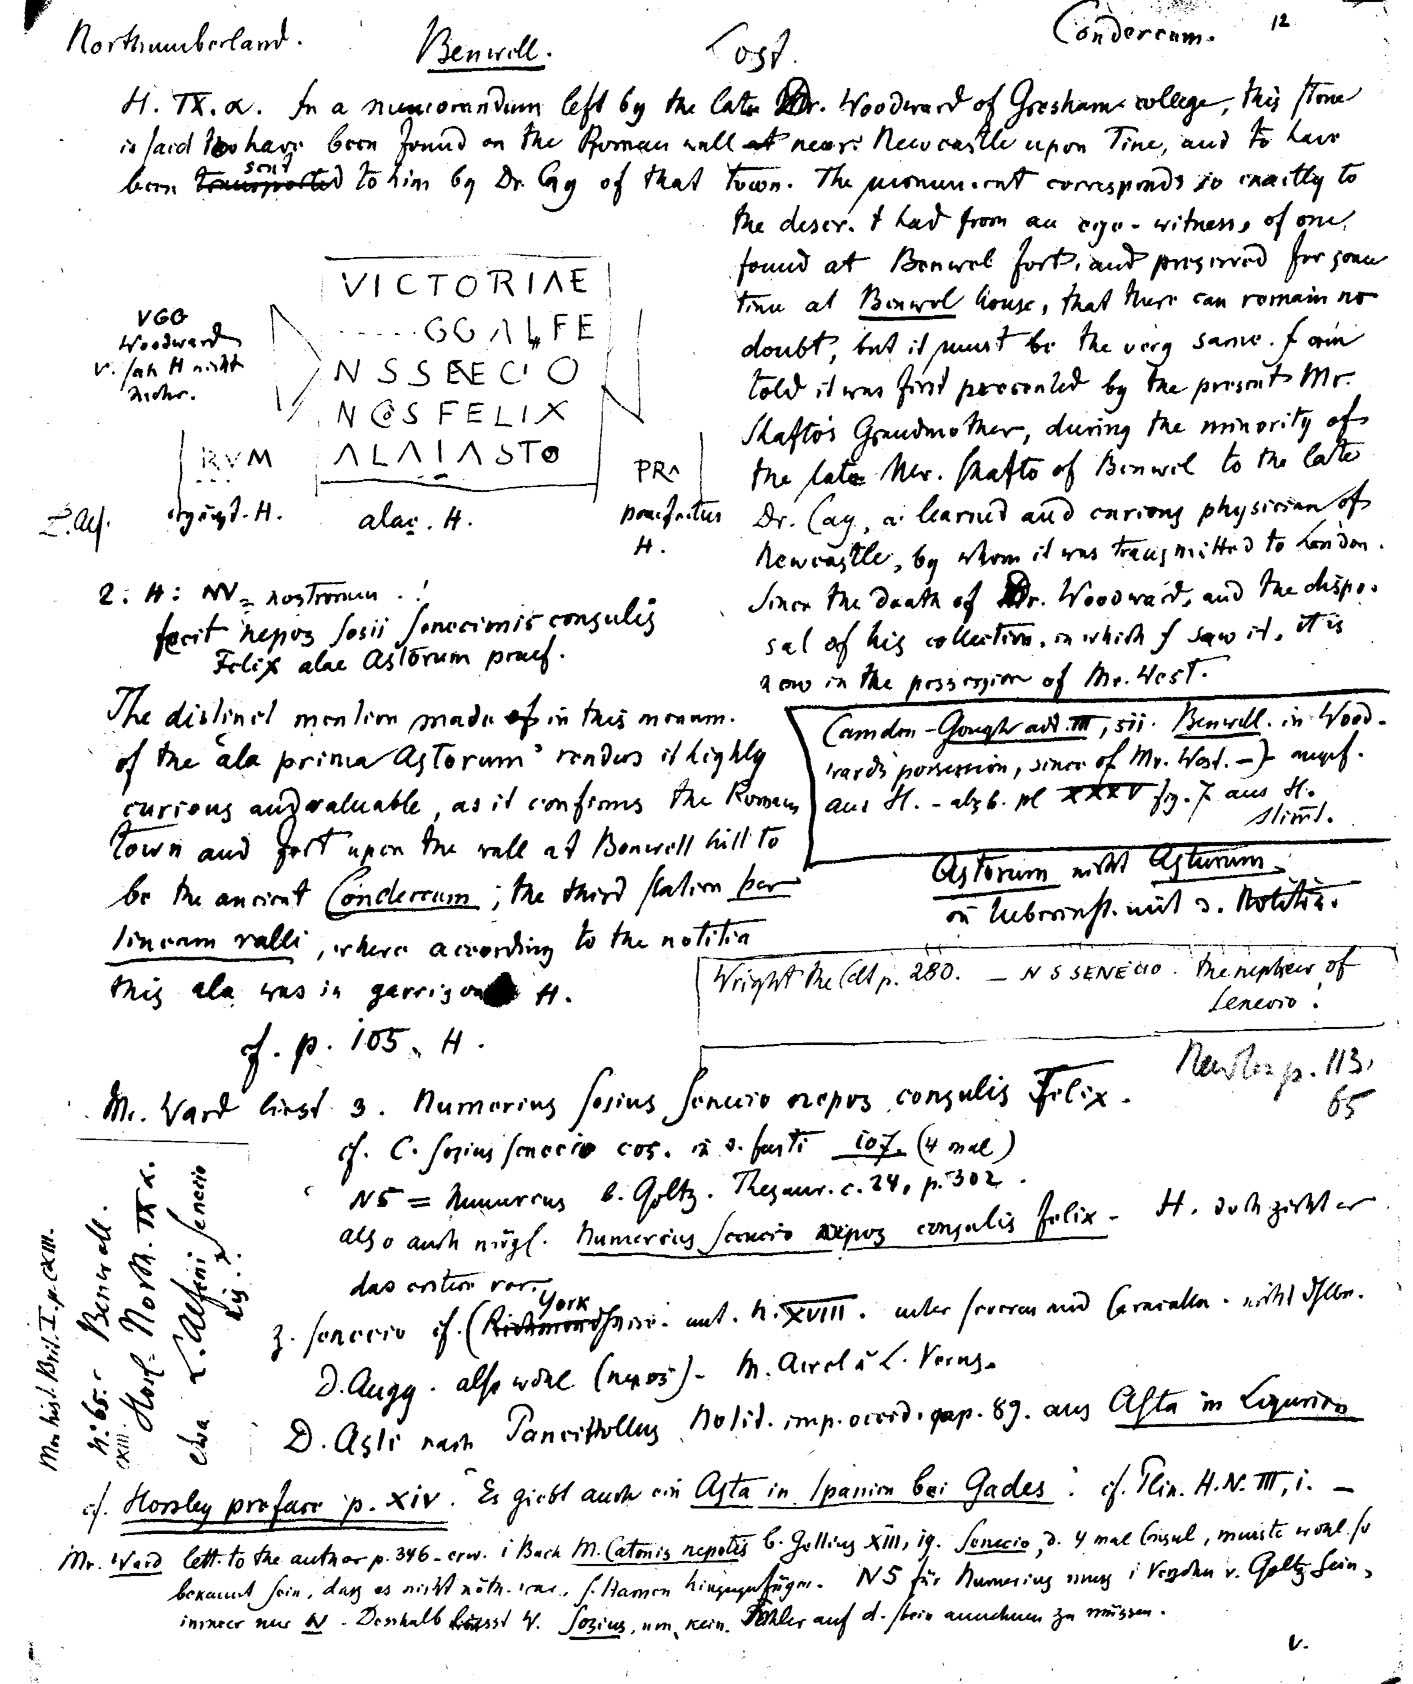 Northumberland.
Benwell.
Lost.
Condercum.
12
H. IX. α. In a memorandum left by the late Dr. Woodward of Gresham college, this stone
is said to have been found on the Roman wall at near Newcastle upon Tine, and to have
been transported sent to him by Dr. Cay of that town. The monument corresponds so exactly to
the descr. I had from an eye-witness, of one
found at Benwel fort, and preserved for some
time at Benwel house, that there can remain no
doubt, but it must be the very same. I am
told it was first presented by the present Mr.
Shafto's Grandmother, during the minority of
the late Mr. Shafto of Benwel to the late
Dr. Cay, a learned and curious physician of
Newcastle, by whom it was transmitted to London.
Since the death of Dr. Woodward, and the dispo-
sal of his collection, in which I saw it, it is
now in the possession of Mr. West.
VGG
Woodward
v. sah H nicht
mehr.
VICTORIAE
· · · · · GGALFE
NSSENECIO
NCOSFELIX
ALAIASTO
RVM
ergänzt. H.
alae. H.
PRA
praefectus
H.
L. Alf.
2. H: NN = nostrorum . !
fecit nepos Sosii Senecionis consulis
Felix alae Astorum praef.
The distinct mention made of in this monum.
of the "ala prima Astorum" renders it highly
curious and valuable, as it confirms the Roman
town and fort upon the wall at Benwell hill to
be the ancient Condercum; the third station per
lineam valli, where according to the notitia
this ala was in garrison H.
cf. p. 105. H.
Camden-Gough add. III, 511. Benwell. in Wood-
ward's possession, since of Mr. West. — angef.
aus H. - abgb. pl XXXV fig. 7 aus H.
stimt.
Astorum nicht Asturum.
in Uebereinst. mit d. Notitia.
Wright the Celt p. 280. — NSSENECIO. the nephew of
Senecio!
Newton p. 113.
65
Mr. Ward liest 3. Numerius Sosius Senecio nepos consulis Felix.
cf. C. Sosius Senecio cos. in d. fasti 107. (4 mal)
NS = Numerius b. Goltz. Thesaur. c. 24, p. 302.
also auch mögl. Numerius Senecio nepos consulis Felix - H. doch zieht er
das erstere vor.
z. Senecio cf. (Richmond York) unt. N. XVIII. unter Severus und Caracalla.
D. Augg. also wohl (nepos) - M. Aurel u L. Verus.
D. Asti nach Pancirollus Notit. imp. occid. cap. 89. aus Asta in Ligurien
cf. Horsley preface p. XIV. Es giebt auch ein Asta in Spanien bei Gades. cf. Plin. H.N. III, 1. —
Mr. Ward lett. to the author p. 346 - erw. i Bach M. Catonis nepotis b. Gellius XIII, 19. Senecio, d. 4 mal Consul, musste wohl so
bekannt sein, dass es nicht nöth. war, s. Namen hinzuzufügen. NS für Numerius muss i Versehn v. Goltz sein,
immer nur N. Desshalb liesst W. Sosius, um kein. Fehler auf d. stein annehmen zu müssen.
v.
Mon hist. Brit. I. p. CXIII.
N.º 65. - Benwell.
CXIII.
Horsl. North. IX α.
etwa L. Alfeni Senecio
nis.?